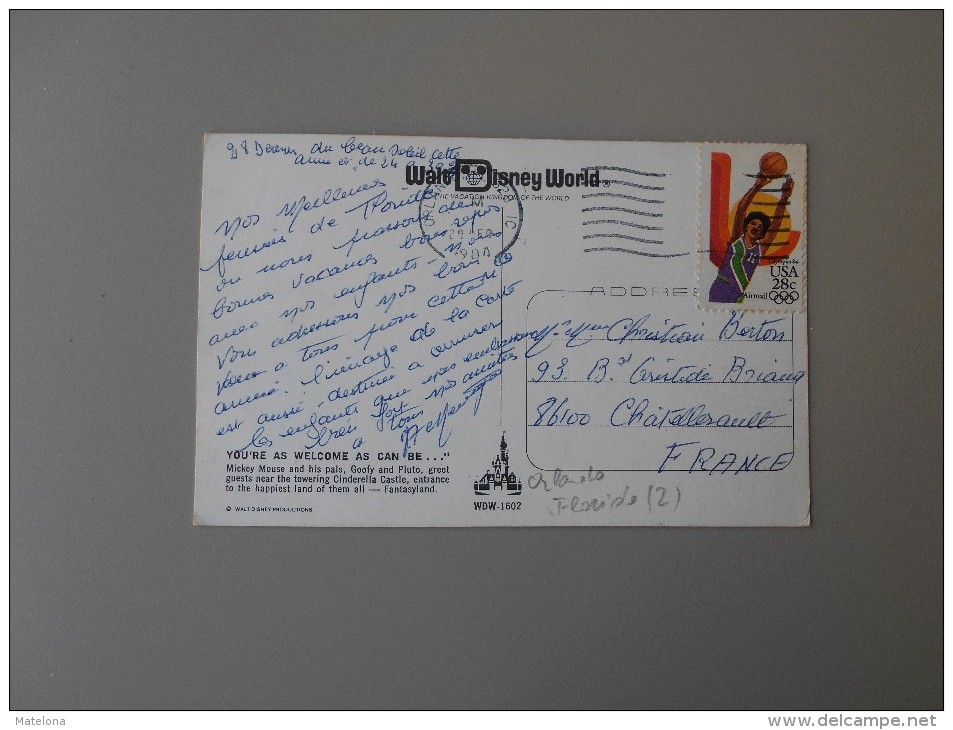 du beau soleil cette
année de 24 a
Walt Disney World®
THE VACATION KINGDOM OF THE WORLD
Nos Meilleures
de Floride
ou nous passons de
bonnes vacances
avec nos enfants - nous
vous adressons nos
a tous pour cette
année. l'image de la carte
est aussi destinée a amuser
les enfants que
a tous nos amitiés
YOU'RE AS WELCOME AS CAN BE . . ."
Mickey Mouse and his pals, Goofy and Pluto, greet
guests near the towering Cinderella Castle, entrance
to the happiest land of them all — Fantasyland.
© WALT DISNEY PRODUCTIONS
WDW-1602
1984
Olympics 84
USA
28c
Airmail
ADDRESS
Christian Berton
93. Bd Aristide Briand
86100 Châtellerault
FRANCE
Orlando
Floride (2)
Matelona
delcampe.net